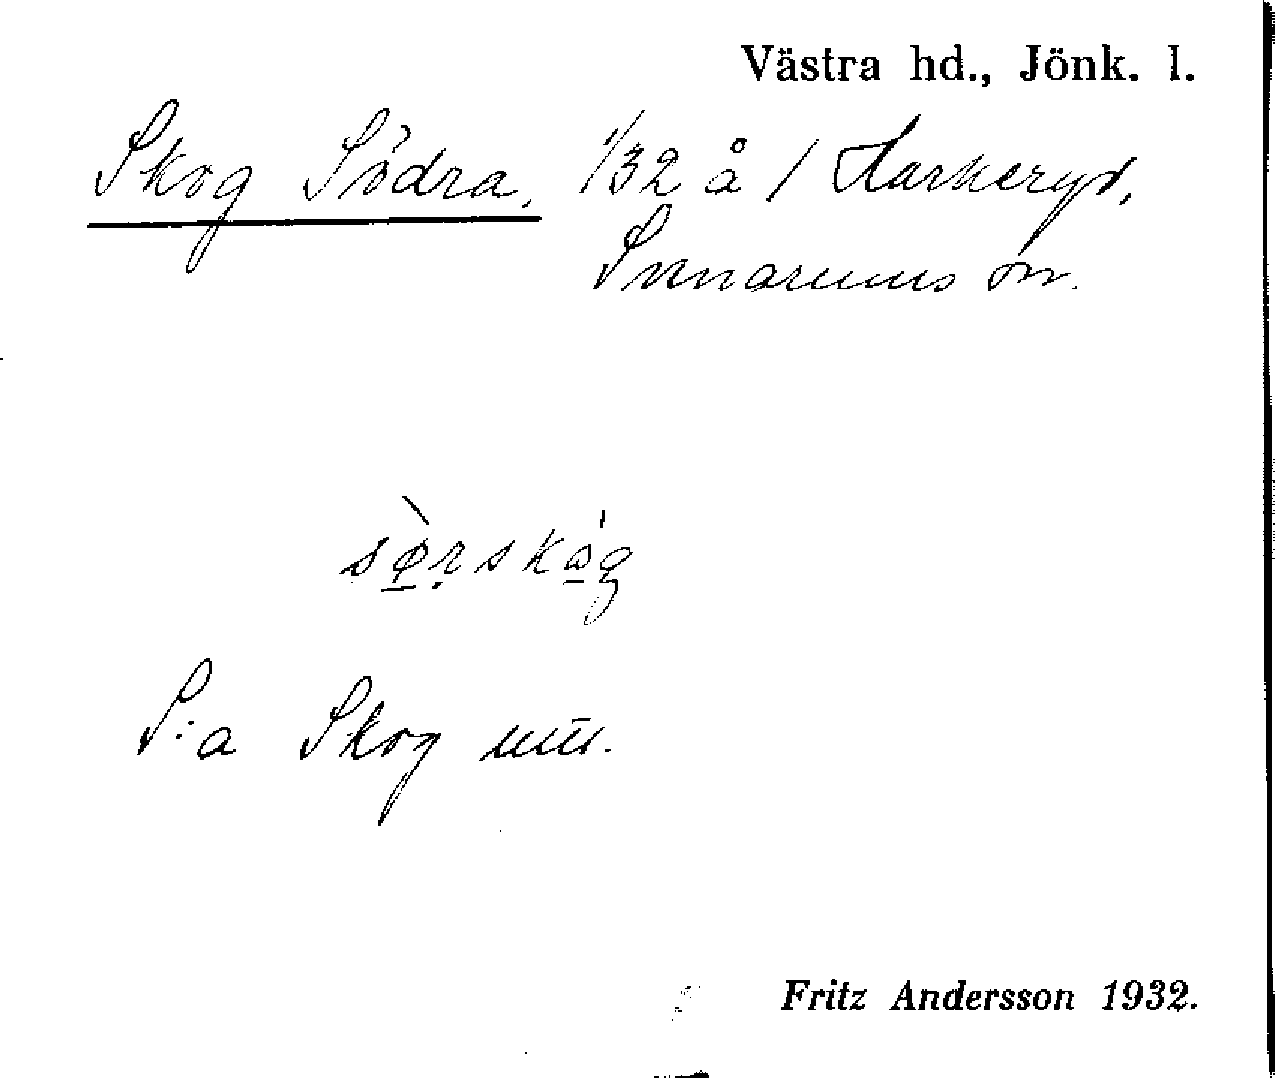 Västra hd., Jönk. l.
Skog Södra, 1/32 å 1 Harkeryd,
Sunnarums sn.
sø̱̀ṛskώ̱g
S:a Skog
Fritz Andersson 1932.